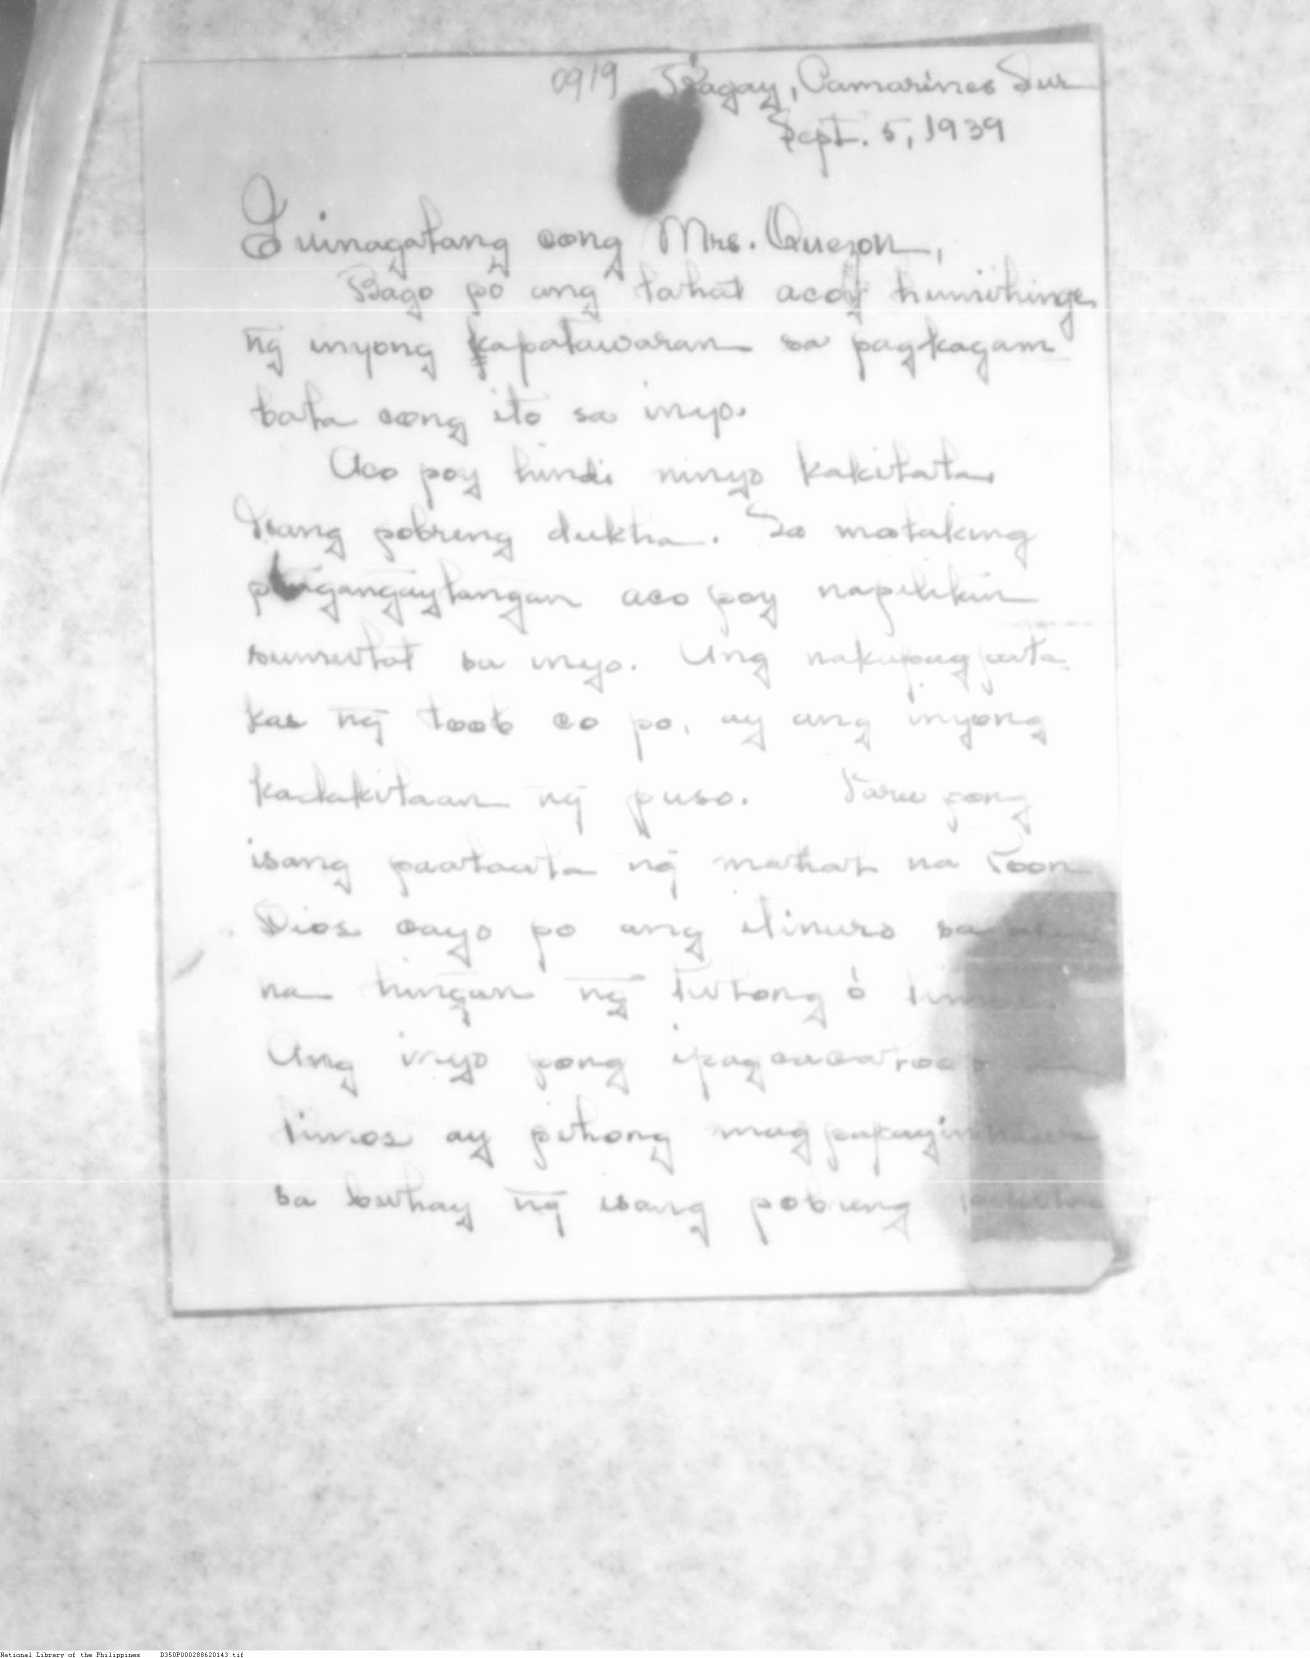 0919 Ragay, Camarines Sur
Sept. 5, 1939
Guinagalang cong Mrs. Quezon,
Bago po ang lahat acoy humihinge
ng inyong kapatawaran sa pagkagam
bala cong ito sa inyo.
Aco poy hindi ninyo kakilala,
isang pobreng dukha. Sa malaking
pangangaylangan aco poy napilitan
sumulat sa inyo. Ang nakapagpata
kas ng loob co po, ay ang inyong
kadakilaan ng puso. pong
isang paatawta ng mahal na Poon
Dios cayo po ang itinuro sa
na hingan ng tulong ó limos.
Ang inyo pong
limos ay pihong magpapayinhawa
sa buhay ng isang pobreng
National Library of the Philippines D350P000288620143.tif